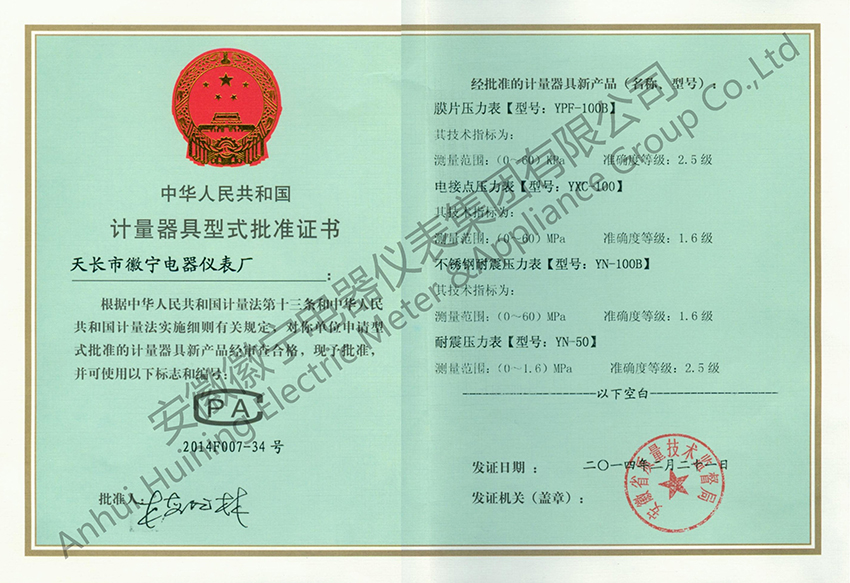 中华人民共和国
计量器具型式批准证书
天长市徽宁电器仪表厂：
根据中华人民共和国计量法第十三条和中华人民
共和国计量法实施细则有关规定，对你单位申请型
式批准的计量器具新产品经审查合格，现予批准，
并可使用以下标志和编号：
PA
2014F007-34 号
批准人：
经批准的计量器具新产品（名称、型号）：
膜片压力表【型号：YPF-100B】
其技术指标为：
测量范围：(0～60) KPa 准确度等级：2.5 级
电接点压力表【型号：YXC-100】
其技术指标为：
测量范围：(0～60) MPa 准确度等级：1.6 级
不锈钢耐震压力表【型号：YN-100B】
其技术指标为：
测量范围：(0～60) MPa 准确度等级：1.6 级
耐震压力表【型号：YN-50】
测量范围：(0～1.6) MPa 准确度等级：2.5 级
以下空白
发证日期：二〇一四年二月二十一日
发证机关（盖章）：
安徽省质量技术监督局
安徽徽宁电器仪表集团有限公司
Anhui Huining Electric Meter &Appliance Group Co.,Ltd